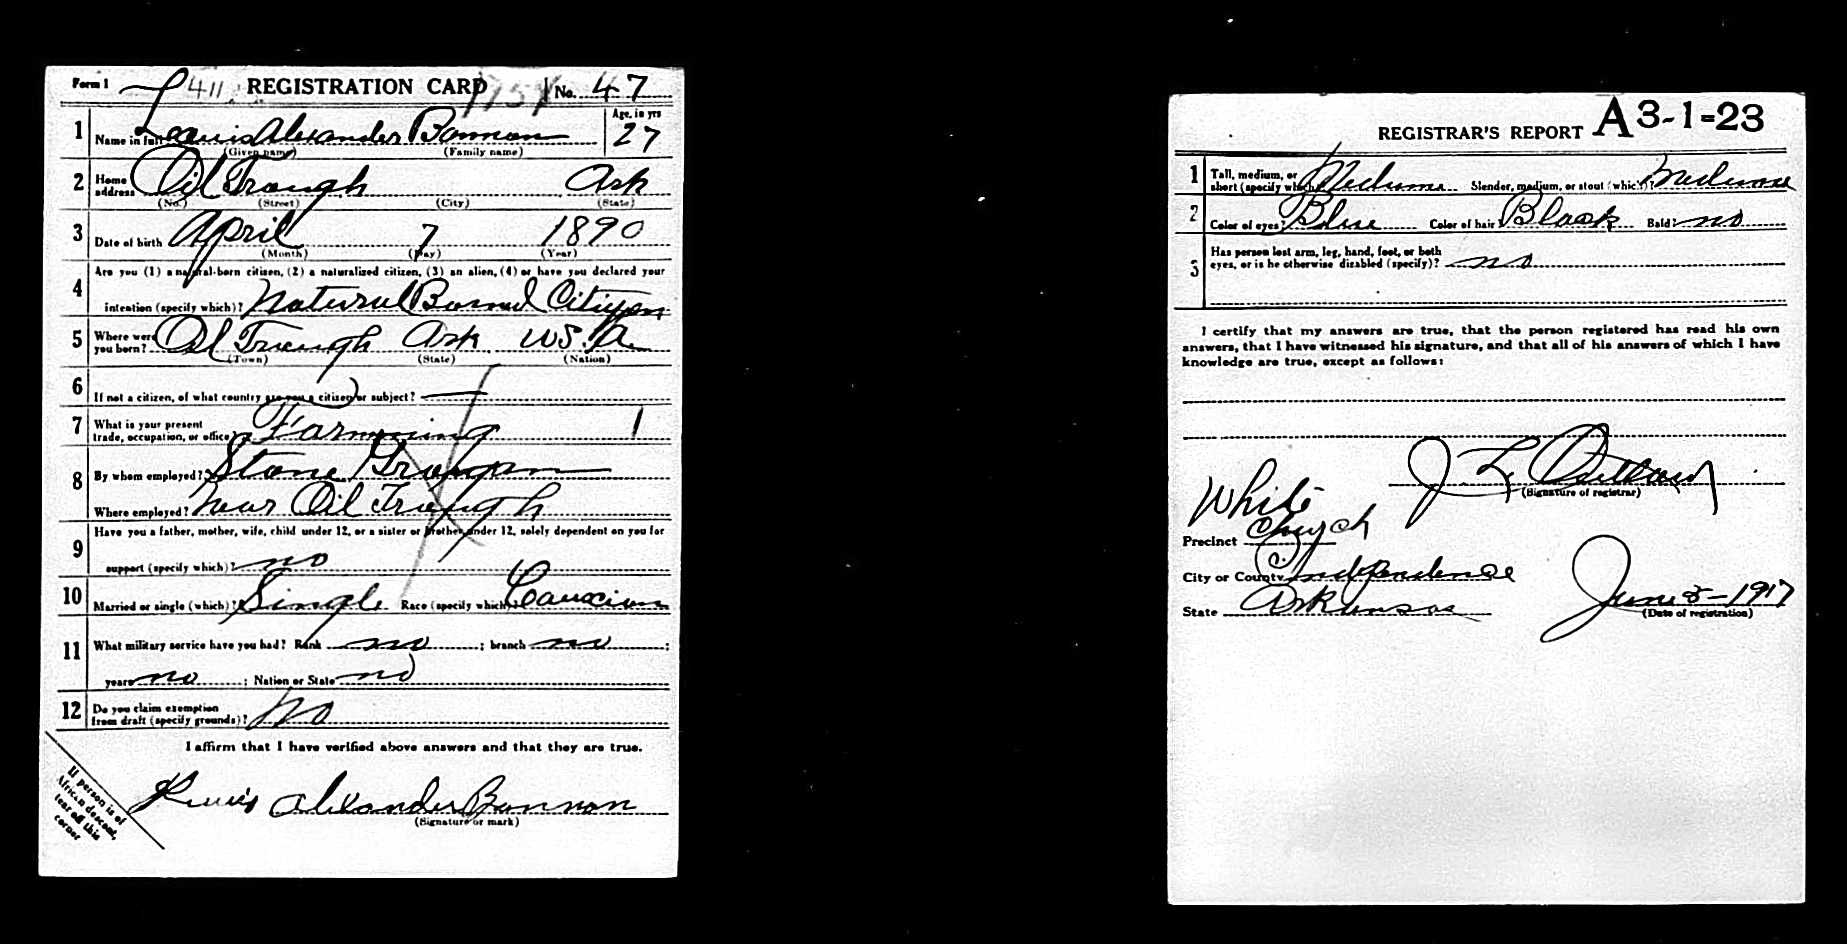 Form 1 411 REGISTRATION CARD No. 47
1 Name in full Lewis Alexander Bannon Age, in yrs 27
(Given name) (Family name)
2 Home address Oil Trough Ark
(No.) (Street) (City) (State)
3 Date of birth April 7 1890
(Month) (Day) (Year)
4 Are you (1) a natural-born citizen, (2) a naturalized citizen, (3) an alien, (4) or have you declared your
intention (specify which)? Natural Borned Citizen
5 Where were you born? Oil Trough Ark US.A.
(Town) (State) (Nation)
6 If not a citizen, of what country are you a citizen or subject?
7 What is your present trade, occupation, or office? Farmming 1
8 By whom employed? Stone
Where employed? Near Oil Trough
9 Have you a father, mother, wife, child under 12, or a sister or brother under 12, solely dependent on you for
support (specify which)? no
10 Married or single (which)? Single Race (specify which)?
11 What military service have you had? Rank no ; branch no ;
years no ; Nation or State no
12 Do you claim exemption from draft (specify grounds)? No
I affirm that I have verified above answers and that they are true.
If person is of
African descent,
tear off this
corner
Lewis Alexander Bannon
(Signature or mark)
REGISTRAR'S REPORT A3-1-23
1 Tall, medium, or short (specify which)? Medium Slender, medium, or stout (which)? Medium
2 Color of eyes? Blue Color of hair? Black Bald? no
3 Has person lost arm, leg, hand, foot, or both
eyes, or is he otherwise disabled (specify)? no
I certify that my answers are true, that the person registered has read his own
answers, that I have witnessed his signature, and that all of his answers of which I have
knowledge are true, except as follows:
J L
(Signature of registrar)
White
Precinct Church
City or County Independence
State Arkansas June 5-1917
(Date of registration)